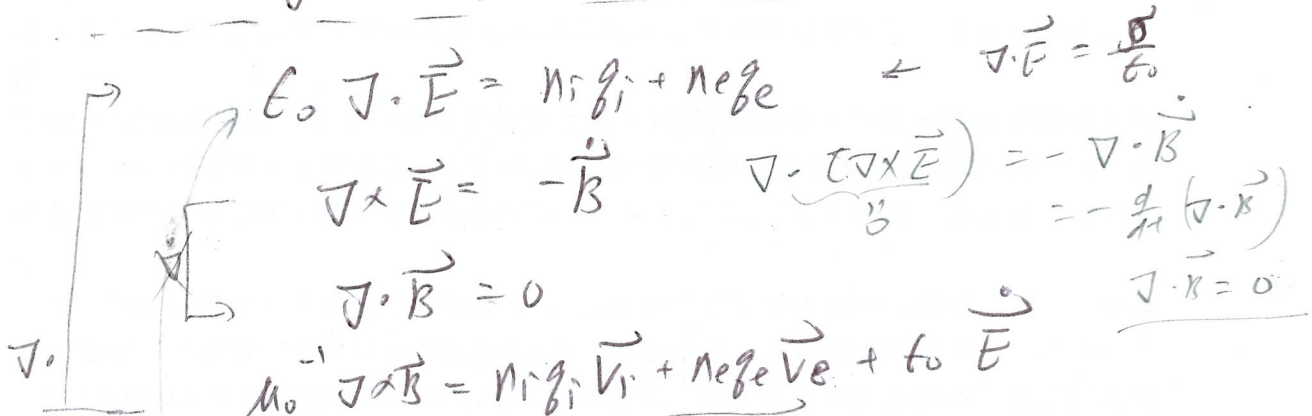 ε₀ ∇·E⃗ = nᵢqᵢ + nₑqₑ ← ∇·E⃗ = σ/ε₀
∇×E⃗ = -Ḃ⃗ ∇·(∇×E⃗) = -∇·Ḃ⃗
0 = -d/dt (∇·B⃗)
∇·B⃗ = 0 ∇·B⃗ = 0
∇· μ₀⁻¹ ∇×B⃗ = nᵢqᵢV⃗ᵢ + nₑqₑV⃗ₑ + ε₀ Ė⃗